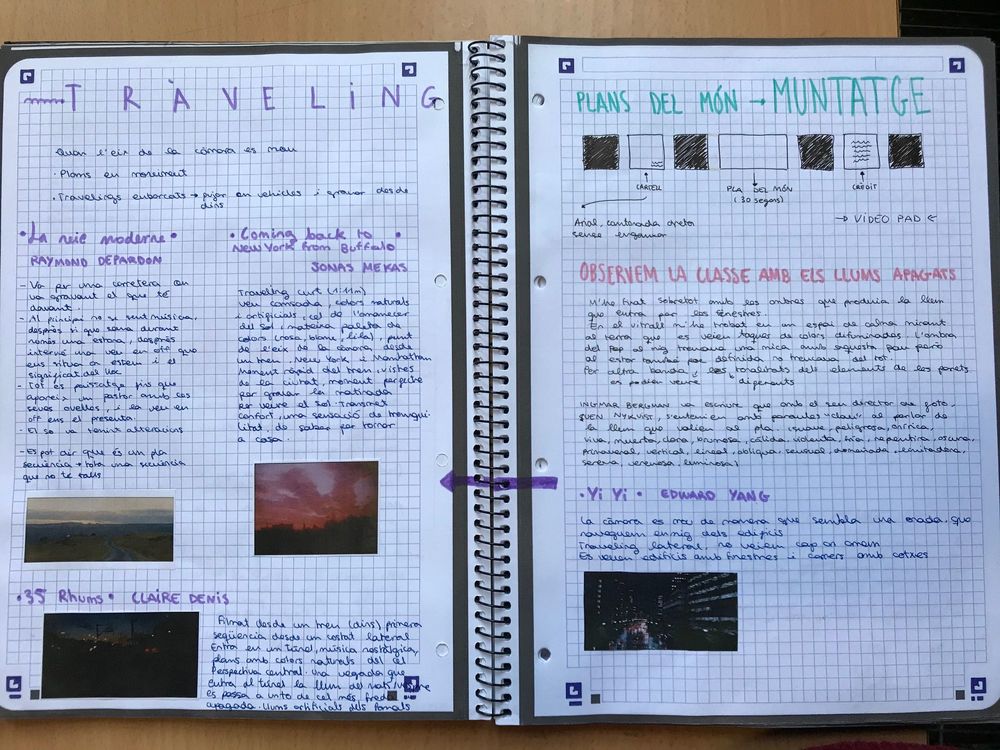 TRÀVELING
Quan l'eix de la càmera es mou
· Plans en moviment
· Travelings embarcats → pujar en vehicles i gravar desde
dins
· La vie moderne ·
RAYMOND DEPARDON
- Va per una carretera on
va gravant el que té
davant.
- Al principi no se sent música,
després si que sona durant
només una estona, després
intervé una veu en off que
ens situa on estem i el
significat del lloc
- Tot és paisatge fins que
apareix un pastor amb les
seves ovelles, i la veu en
off ens el presenta.
- El so va tenint alteracions
- Es pot dir que és un pla
seqüència → tota una seqüència
que no té talls
· Coming back to
New York from Buffalo ·
JONAS MEKAS
Traveling curt (1:11m)
veu comiada, colors naturals
i artificials, cel de l'amanecer
del sol, mateixa paleta de
colors (rosa, blanc, lila), punt
de l'eix de la càmera desde
un tren, New York i Manhattan
Moment ràpid del tren, vistes
de la ciutat, moment perfecte
per gravar la matinada
per veure el sol. Transmet
confort, una sensació de tranqui-
litat, de saber per tornar
a casa.
· 35 Rhums · CLAIRE DENIS
Filmat desde un tren (dins), primera
seqüencia desde un costat lateral
Entra en un túnel, música nostàlgica,
plans amb colors naturals del cel
Perspectiva central. Una vegada que
entra al túnel la llum del
es passa a unto de cel més freda
apagada. Llums artificials dels fanals
PLANS DEL MÓN → MUNTATGE
CARTELL
PLA DEL MÓN
(30 segons)
CRÈDIT
Arial, cantonada dreta
sense enganxar
→ VIDEO PAD ←
OBSERVEM LA CLASSE AMB ELS LLUMS APAGATS
M'he fixat sobretot amb les ombres que produïa la llum
que entra per les finestres.
En el vitrall m'he trobat en un espai de calma mirant
al terra que es veien toques de colors difuminades. L'ombra
del pop al mig trencava una mica amb aquesta pau però
al estar també poc definida no trencava del tot.
Per altra banda les tonalitats dels elements de les parets
es podien veure diferents
INGMAR BERGMAN va escriure que amb el seu director de foto,
SVEN NYKVIST, s'entenien amb paraules "clau" al parlar de
la llum que volien al pla (suave, peligrosa, onírica,
viva, muerta, clara, brumosa, cálida, violenta, fría, repentina, oscura,
primaveral, vertical, lineal, oblicua, sensual, dominada, limitadora,
serena, venenosa, luminosa)
· Yi Yi · EDWARD YANG
La càmera es mou de manera que sembla una onada, que
naveguem enmig dels edificis
Traveling lateral, no veiem cap on anem
Es veuen edificis amb finestres i carrers amb cotxes